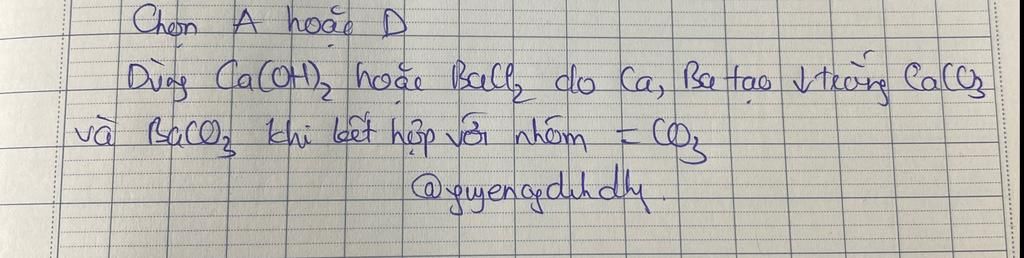 Chọn A hoặc D
Dùng Ca(OH)₂ hoặc BaCl₂ do Ca, Ba tạo ↓ trắng CaCO₃
và BaCO₃ khi kết hợp với nhóm = CO₃